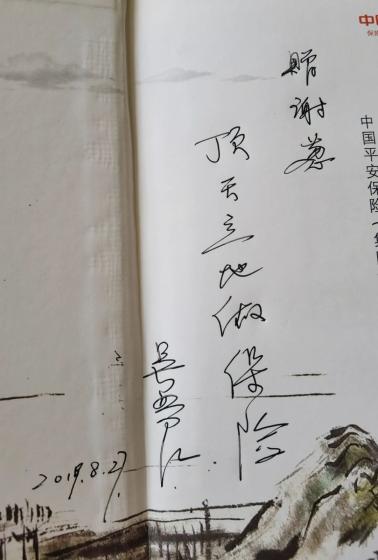 中国
保险
中国平安保险
赠谢
顶天立地做保险
吴
2019.8.27